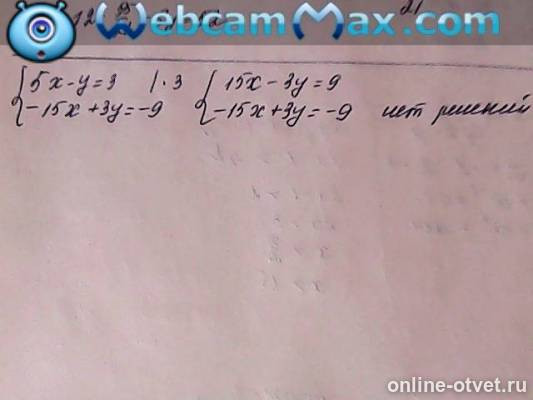 WebcamMax.com
{ 5x-y=3 | ·3 { 15x-3y=9
{ -15x+3y=-9 { -15x+3y=-9 нет решений
online-otvet.ru